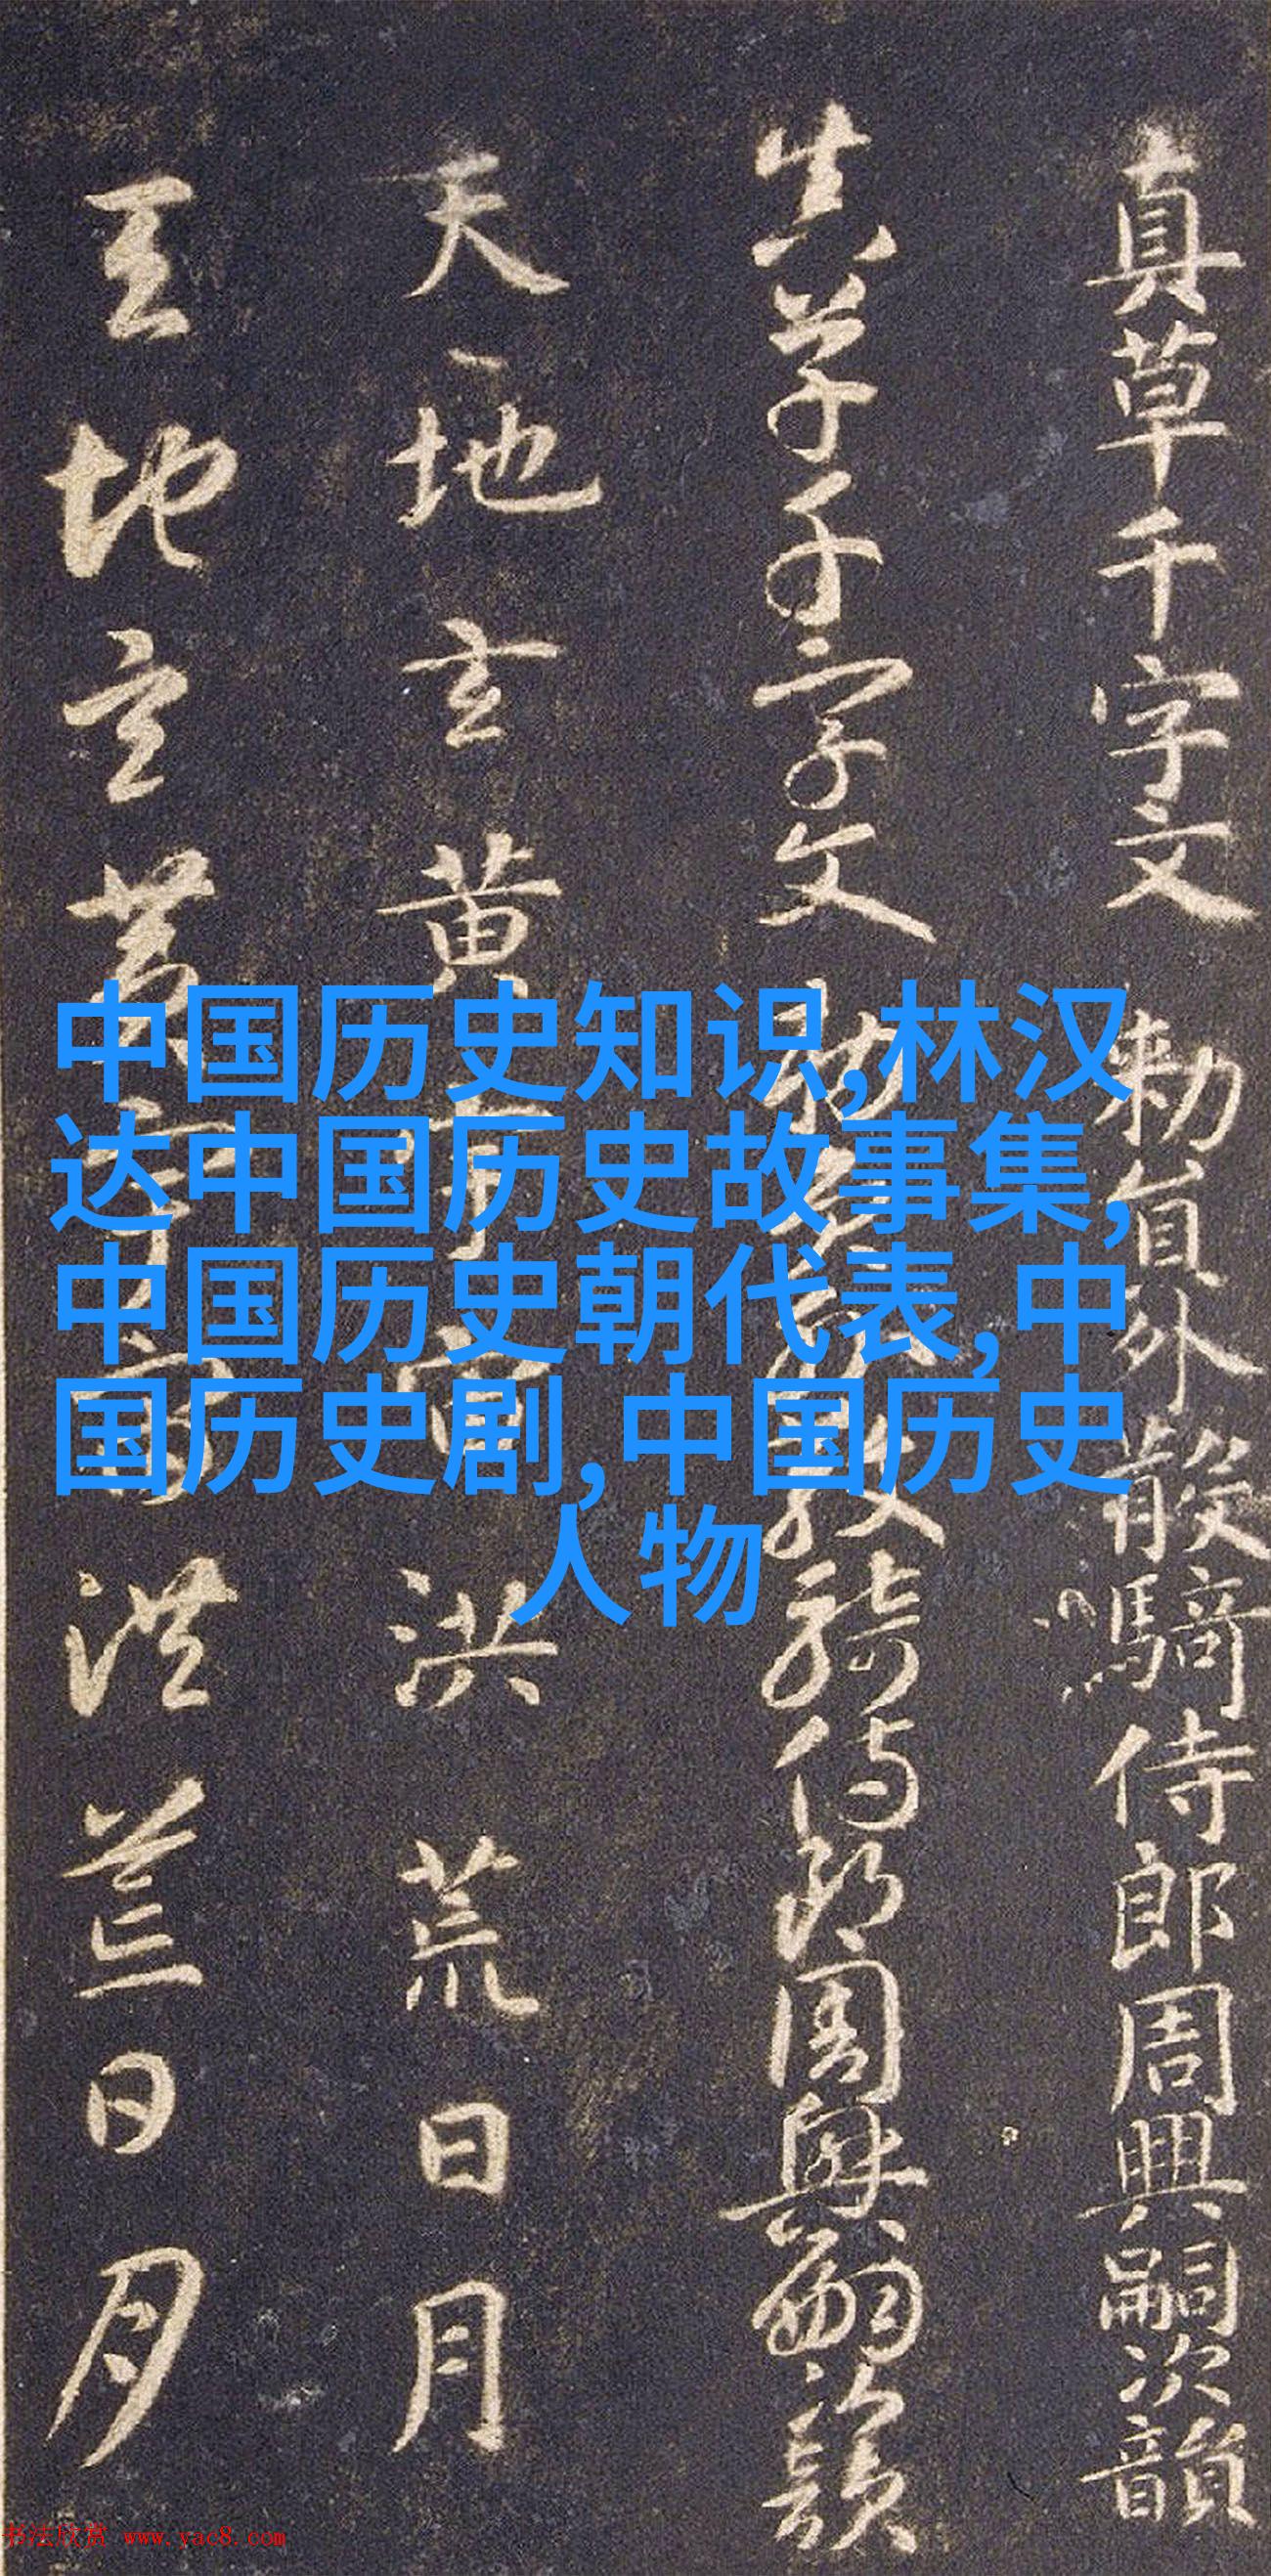 真草千字文 勅員外散騎侍郎周興嗣次韻
真草千字文 勅員外散騎侍郎周興嗣次韻
天地玄黄宇宙洪荒日月
天地玄黄宇宙洪荒日月
中国历史知识,林汉
达中国历史故事集,
中国历史朝代表,中
国历史剧,中国历史
人物
书法欣赏 www.yac8.com